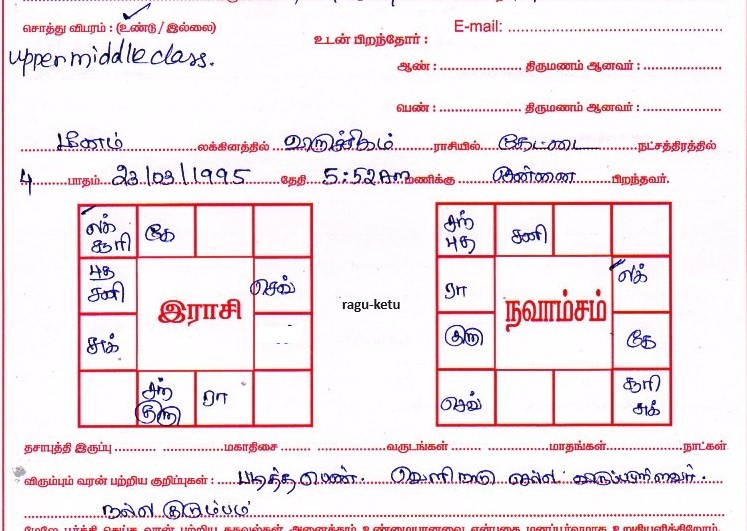 சொத்து விபரம் : (உண்டு / இல்லை)
E-mail:
upper middle class.
உடன் பிறந்தோர் :
ஆண் : திருமணம் ஆனவர் :
பெண் : திருமணம் ஆனவர் :
மீனம் லக்கினத்தில் விருச்சிகம் ராசியில் கேட்டை நட்சத்திரத்தில்
4 பாதம் 23/03/1995 தேதி 5:52 Am மணிக்கு சென்னை பிறந்தவர்.
லக் சூரி கே
புத சனி செவ்
இராசி
சுக்
சந் குரு ரா
ragu-ketu
சந் புத சனி
ரா லக்
நவாம்சம்
குரு கே
செவ் சூரி சுக்
தசாபுத்தி இருப்பு மகாதிசை வருடங்கள் மாதங்கள் நாட்கள்
விரும்பும் வரன் பற்றிய குறிப்புகள் : படித்த பெண். வெளிநாடு செல்ல விருப்பமுள்ளவர்.
நல்ல குடும்பம்